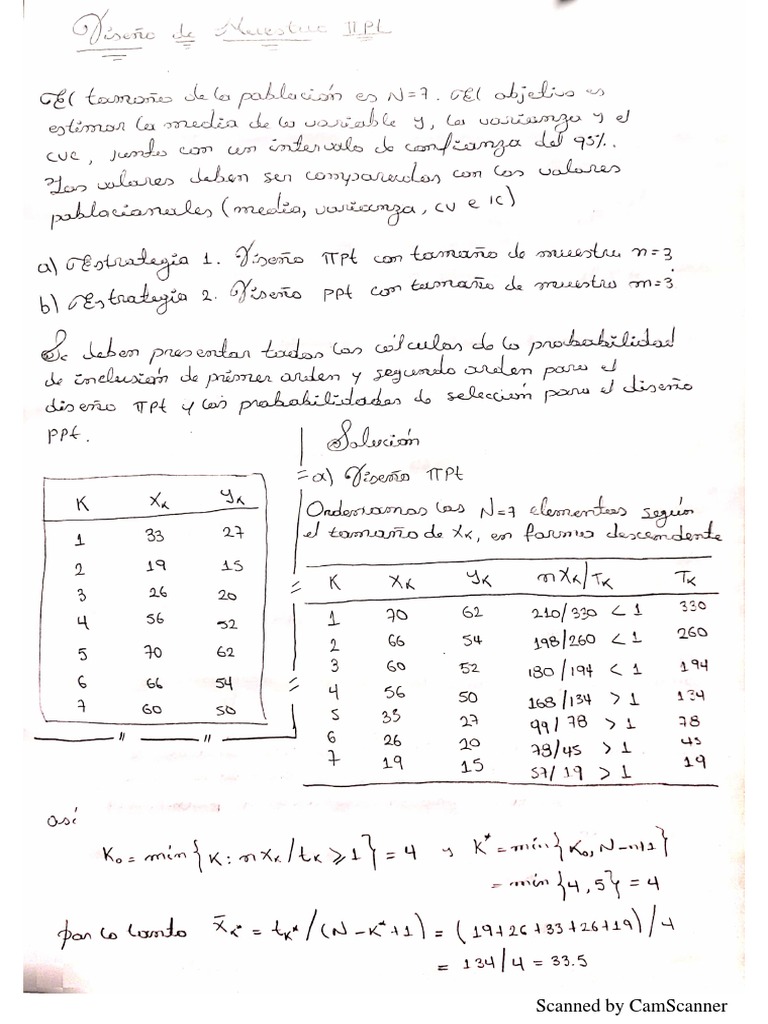 Diseño de Muestreo ΠPt
El tamaño de la población es N=7. El objetivo es
estimar la media de la variable y, la varianza y el
cve, junto con un intervalo de confianza del 95%.
Los valores deben ser comparados con los valores
poblacionales (media, varianza, cv e IC)
a) Estrategia 1. Diseño ΠPt con tamaño de muestra n=3
b) Estrategia 2. Diseño ppt con tamaño de muestra m=3
Se deben presentar todos los cálculos de la probabilidad
de inclusión de primer orden y segundo orden para el
diseño ΠPt y las probabilidades de selección para el diseño
ppt.
K Xk yk
1 33 27
2 19 15
3 26 20
4 56 52
5 70 62
6 66 54
7 60 50
Solución
a) Diseño ΠPt
Ordenamos los N=7 elementos según
el tamaño de Xk, en forma descendente
K Xk yk nXk/Tk Tk
1 70 62 210/330 < 1 330
2 66 54 198/260 < 1 260
3 60 52 180/194 < 1 194
4 56 50 168/134 > 1 134
5 33 27 99/78 > 1 78
6 26 20 78/45 > 1 45
7 19 15 57/19 > 1 19
así
K₀ = min{K: nXk/tk ⩾ 1} = 4 y K* = min{K₀, N-n+1}
= min{4,5} = 4
por lo tanto x̄k* = tk*/(N-K*+1) = (19+26+33+26+19)/4
= 134/4 = 33.5
Scanned by CamScanner